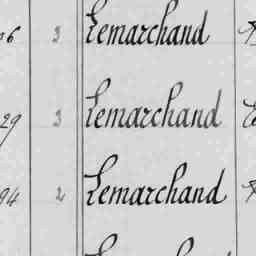 6 3 Lemarchand
29 3 Lemarchand
94 2 Lemarchand